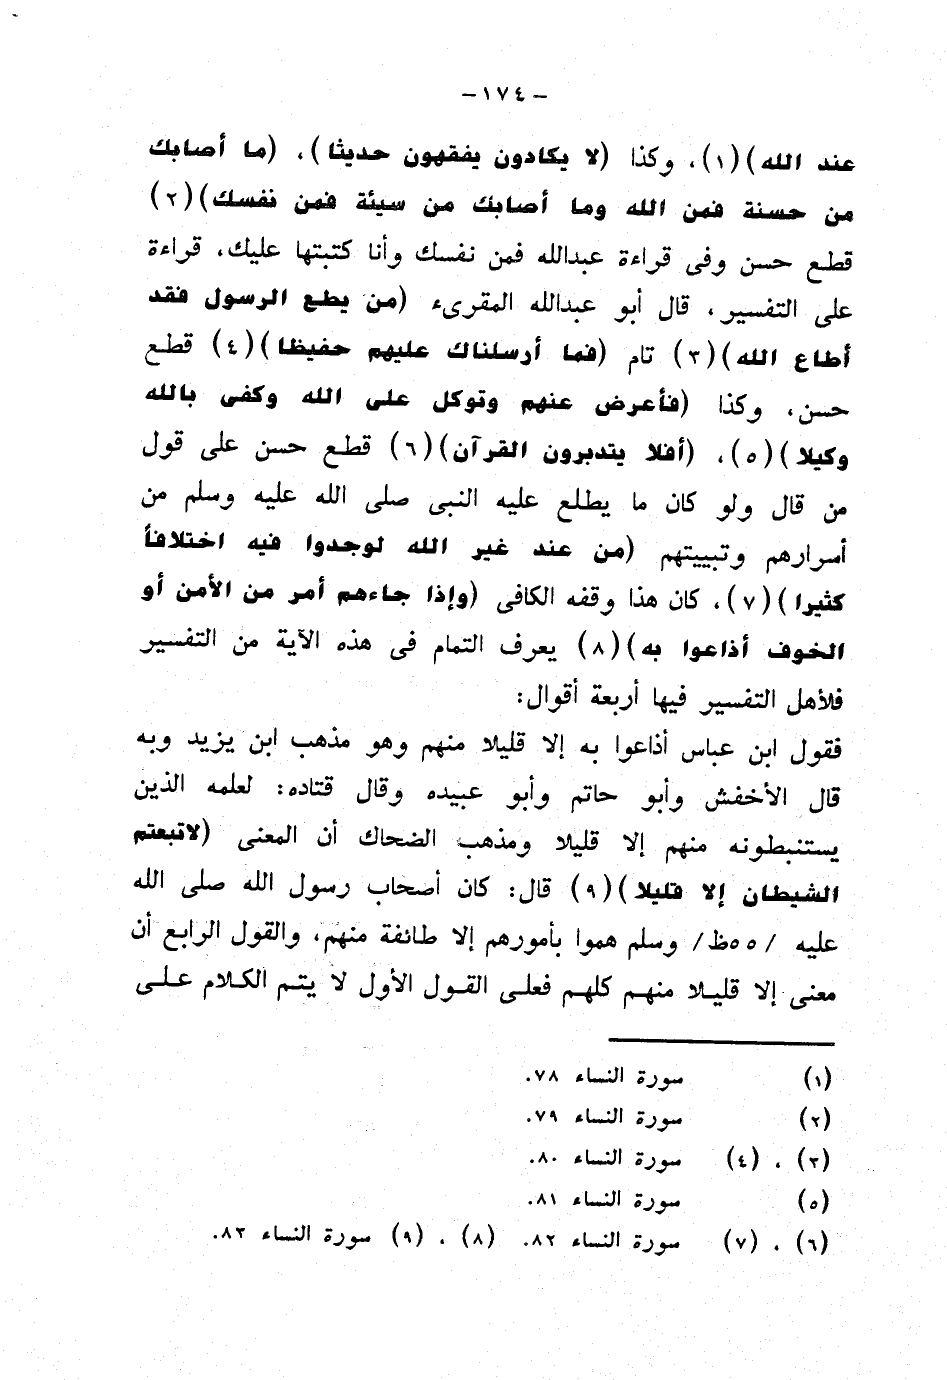 -١٧٤-
عند الله)(١)، وكذا (لا يكادون يفقهون حديثا)، (ما أصابك
من حسنة فمن الله وما أصابك من سيئة فمن نفسك)(٢)
قطع حسن وفى قراءة عبدالله فمن نفسك وأنا كتبتها عليك، قراءة
على التفسير، قال أبو عبدالله المقرىء (من يطع الرسول فقد
أطاع الله)(٣) تام (فما أرسلناك عليهم حفيظا)(٤) قطع
حسن، وكذا (فأعرض عنهم وتوكل على الله وكفى بالله
وكيلا)(٥)، (أفلا يتدبرون القرآن)(٦) قطع حسن على قول
من قال ولو كان ما يطلع عليه النبى صلى الله عليه وسلم من
أسرارهم وتبييتهم (من عند غير الله لوجدوا فيه اختلافاً
كثيرا)(٧)، كان هذا وقفه الكافى (وإذا جاءهم أمر من الأمن أو
الخوف أذاعوا به)(٨) يعرف التمام فى هذه الآية من التفسير
فلأهل التفسير فيها أربعة أقوال:
فقول ابن عباس أذاعوا به إلا قليلا منهم وهو مذهب ابن يزيد وبه
قال الأخفش وأبو حاتم وأبو عبيده وقال قتاده: لعلمه الذين
يستنبطونه منهم إلا قليلا ومذهب الضحاك أن المعنى (لاتبعتم
الشيطان إلا قليلا)(٩) قال: كان أصحاب رسول الله صلى الله
عليه /٥٥ظ/ وسلم هموا بأمورهم إلا طائفة منهم، والقول الرابع أن
معنى إلا قليلا منهم كلهم فعلى القول الأول لا يتم الكلام على
(١) سورة النساء ٧٨.
(٢) سورة النساء ٧٩.
(٣) ، (٤) سورة النساء ٨٠.
(٥) سورة النساء ٨١.
(٦) ، (٧) سورة النساء ٨٢. (٨) ، (٩) سورة النساء ٨٣.